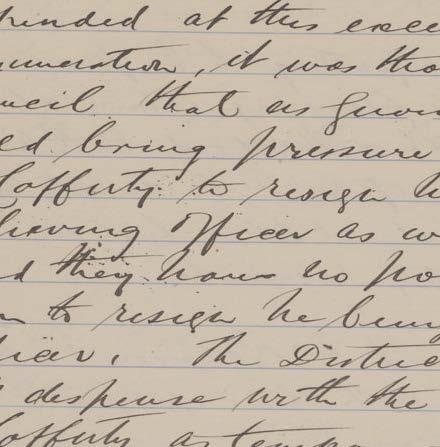 pended at this excee
muneration, it was tho
uncil that as Guar
ed bring pressure
Cafferty to resign h
lieving officer as w
d they have no po
m to resign he being
ficer. The Distric
dispense with the
Cafferty as tempo